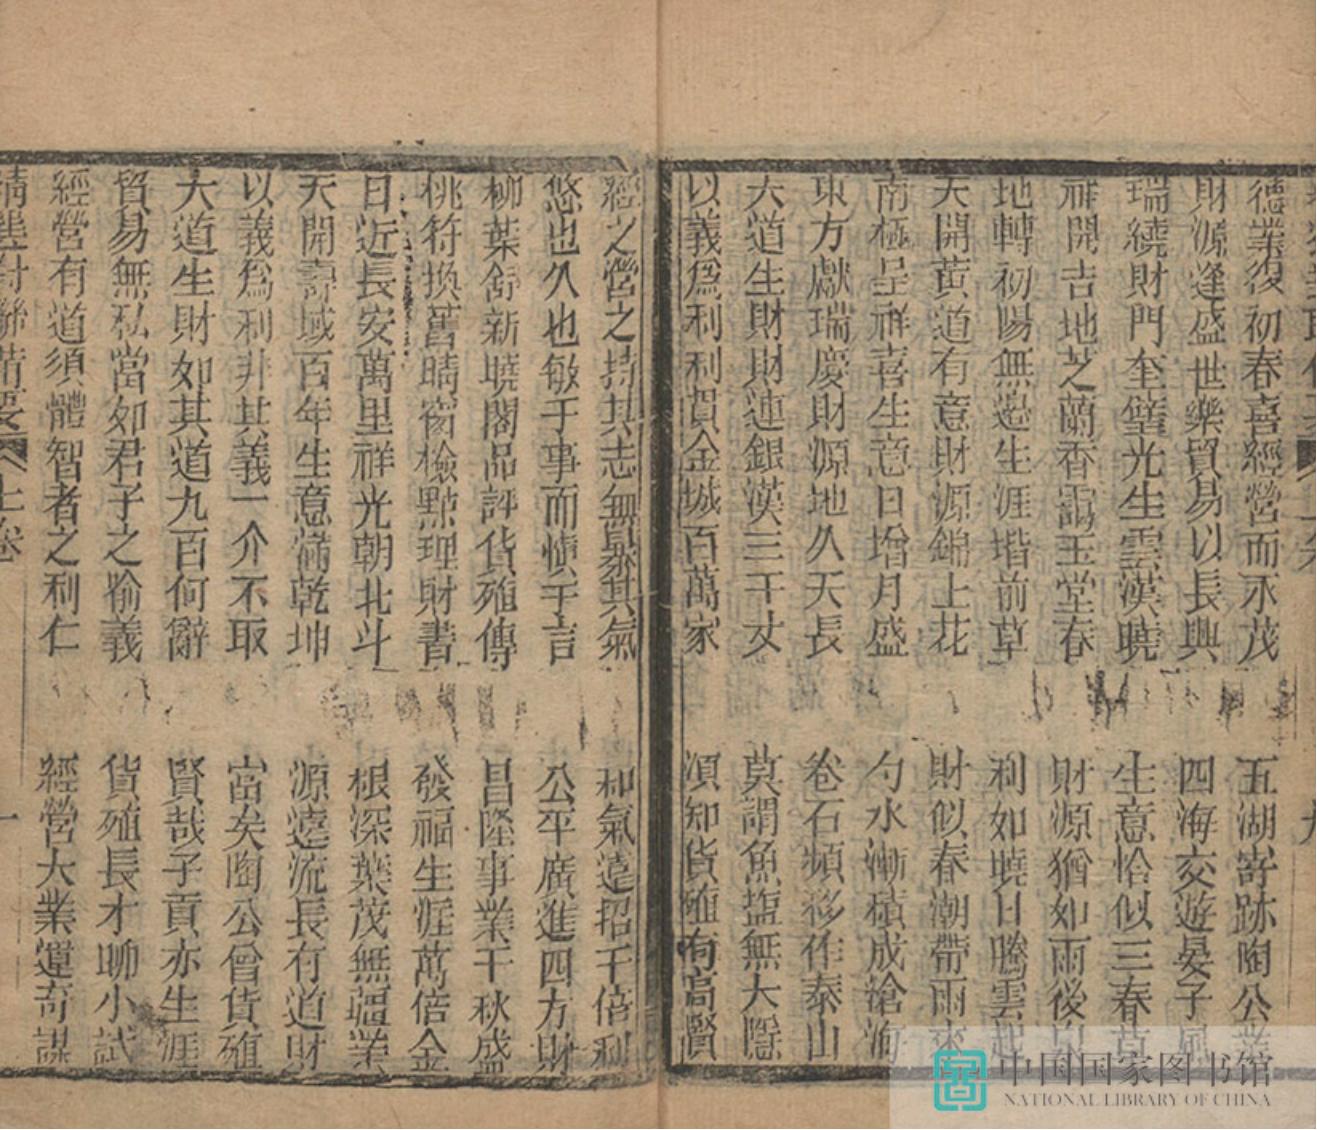 德業復初春喜經營而永茂
財源逢盛世樂貿易以長興
瑞繞財門奎璧光生雲漢曉
祥開吉地芝蘭香靄玉堂春
地轉初陽無邊生涯堦前草
天開黃道有意財源錦上花
南極呈祥喜生意日增月盛
東方獻瑞慶財源地久天長
大道生財財連銀漢三千丈
以義爲利利貫金城百萬家
五湖寄跡陶公業
四海交遊晏子風
生意恰似三春草
財源猶如雨後泉
利如曉日騰雲起
財似春潮帶雨來
勺水漸積成滄海
卷石頻移作泰山
莫謂魚塩無大隱
須知貨殖有高賢
經之營之持其志無暴其氣
悠也久也敏于事而慎于言
柳葉舒新曉閣品評貨殖傳
桃符換舊晴窗檢點理財書
日近長安萬里祥光朝北斗
天開壽域百年生意滿乾坤
以義爲利非其義一介不取
大道生財如其道九百何辭
貿易無私當如君子之喻義
經營有道須體智者之利仁
和氣遠招千倍利
公平廣進四方財
昌隆事業千秋盛
發福生涯萬倍金
根深葉茂無疆業
源遠流長有道財
富矣陶公曾貨殖
賢哉子貢亦生涯
貨殖長才聊小試
經營大業運奇謀
上卷
中国国家图书馆
NATIONAL LIBRARY OF CHINA